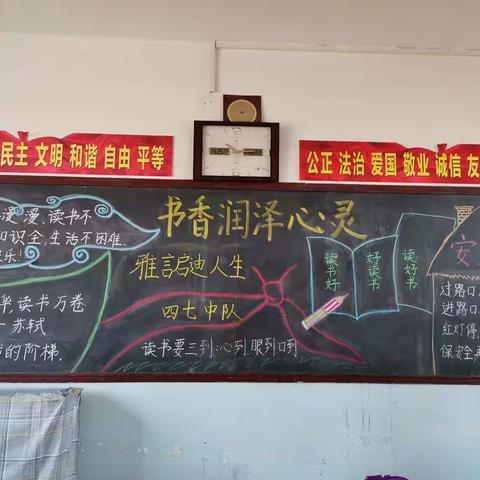 民主 文明 和谐 自由 平等
公正 法治 爱国 敬业 诚信 友
书香润泽心灵
漫漫,读书不
识全,生活不困难.
乐!
读书万卷
苏轼
的阶梯.
雅言启迪人生
四七中队
读书要三到,心到,眼到,口到
读书好
好读书
读好书
安
过路口
进路口
红灯停,
保安全,